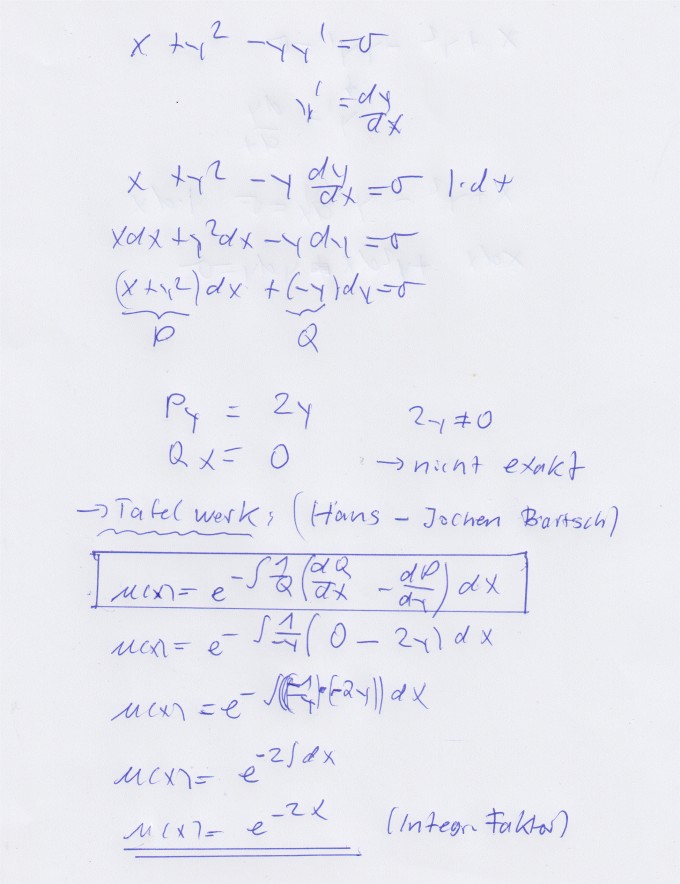 x + y² - yy' = 0
y' = dy/dx
x + y² - y dy/dx = 0 |·dx
xdx + y²dx - ydy = 0
(x + y²)dx + (-y)dy = 0
P Q
Py = 2y 2y ≠ 0
Qx = 0 → nicht exakt
→ Tafelwerk: (Hans - Jochen Bartsch)
μ(x) = e^(-∫ 1/Q (dQ/dx - dP/dy) dx)
μ(x) = e^(-∫ 1/-y (0 - 2y) dx)
μ(x) = e^(-∫((-1/y)·(-2y)) dx)
μ(x) = e^(-2∫dx)
μ(x) = e^(-2x) (Integr. Faktor)